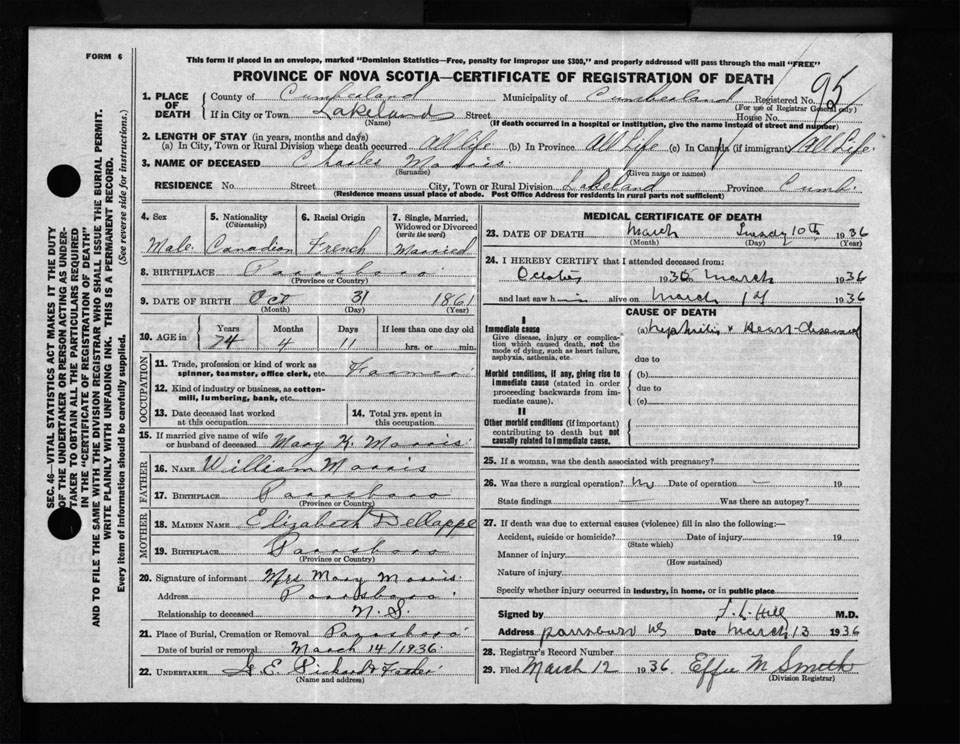 FORM 6
This form if placed in an envelope, marked "Dominion Statistics—Free, penalty for improper use $300," and properly addressed will pass through the mail "FREE"
PROVINCE OF NOVA SCOTIA—CERTIFICATE OF REGISTRATION OF DEATH
1. PLACE OF DEATH County of Cumberland Municipality of Cumberland Registered No. 95
(For use of Registrar General only)
If in City or Town Lakeland Street House No.
(Name) (If death occurred in a hospital or institution, give the name instead of street and number)
2. LENGTH OF STAY (in years, months and days)
(a) In City, Town or Rural Division where death occurred All Life (b) In Province All Life (c) In Canada (if immigrant) All Life
3. NAME OF DECEASED Charles Morris
(Surname) (Given name or names)
RESIDENCE No. Street City, Town or Rural Division Lakeland Province Cumb.
(Residence means usual place of abode. Post Office Address for residents in rural parts not sufficient)
4. Sex Male
5. Nationality (Citizenship) Canadian
6. Racial Origin French
7. Single, Married, Widowed or Divorced (write the word) Married
8. BIRTHPLACE Parrsboro
(Province or Country)
9. DATE OF BIRTH Oct 31 1861
(Month) (Day) (Year)
10. AGE in Years 74 Months 4 Days 11 If less than one day old hrs. or min.
OCCUPATION
11. Trade, profession or kind of work as spinner, teamster, office clerk, etc. Farmer
12. Kind of industry or business, as cotton-mill, lumbering, bank, etc.
13. Date deceased last worked at this occupation
14. Total yrs. spent in this occupation
15. If married give name of wife or husband of deceased Mary K. Morris
FATHER
16. NAME William Morris
17. BIRTHPLACE Parrsboro
(Province or Country)
MOTHER
18. MAIDEN NAME Elizabeth Dellappe
19. BIRTHPLACE Parrsboro
(Province or Country)
20. Signature of informant Mrs Mary Morris
Address Parrsboro
Relationship to deceased N.S.
21. Place of Burial, Cremation or Removal Parrsboro
Date of burial or removal March 14/1936
22. UNDERTAKER G. E. Pickard &
(Name and address)
MEDICAL CERTIFICATE OF DEATH
23. DATE OF DEATH March 10th 1936
(Month) (Day) (Year)
24. I HEREBY CERTIFY that I attended deceased from:
October 1935 March 1936
and last saw him alive on March 1936
CAUSE OF DEATH
I
Immediate cause
Give disease, injury or complication which caused death, not the mode of dying, such as heart failure, asphyxia, asthenia, etc.
(a) Nephritis & Heart
due to
Morbid conditions, if any, giving rise to immediate cause (stated in order proceeding backwards from immediate cause).
(b)
due to
(c)
II
Other morbid conditions (if important) contributing to death but not causally related to immediate cause.
25. If a woman, was the death associated with pregnancy?
26. Was there a surgical operation? no Date of operation — 19
State findings Was there an autopsy?
27. If death was due to external causes (violence) fill in also the following:—
Accident, suicide or homicide? Date of injury 19
(State which)
Manner of injury
(How sustained)
Nature of injury
Specify whether injury occurred in industry, in home, or in public place
Signed by Hill M.D.
Address Parrsboro NS Date March 13 1936
28. Registrar's Record Number
29. Filed March 12 1936 Effie M Smith
(Division Registrar)
SEC. 46—VITAL STATISTICS ACT MAKES IT THE DUTY
OF THE UNDERTAKER OR PERSON ACTING AS UNDER-
TAKER TO OBTAIN ALL THE PARTICULARS REQUIRED
IN THE "CERTIFICATE OF REGISTRATION OF DEATH"
AND TO FILE THE SAME WITH THE DIVISION REGISTRAR WHO SHALL ISSUE THE BURIAL PERMIT.
WRITE PLAINLY WITH UNFADING INK. THIS IS A PERMANENT RECORD.
Every item of information should be carefully supplied. (See reverse side for instructions.)